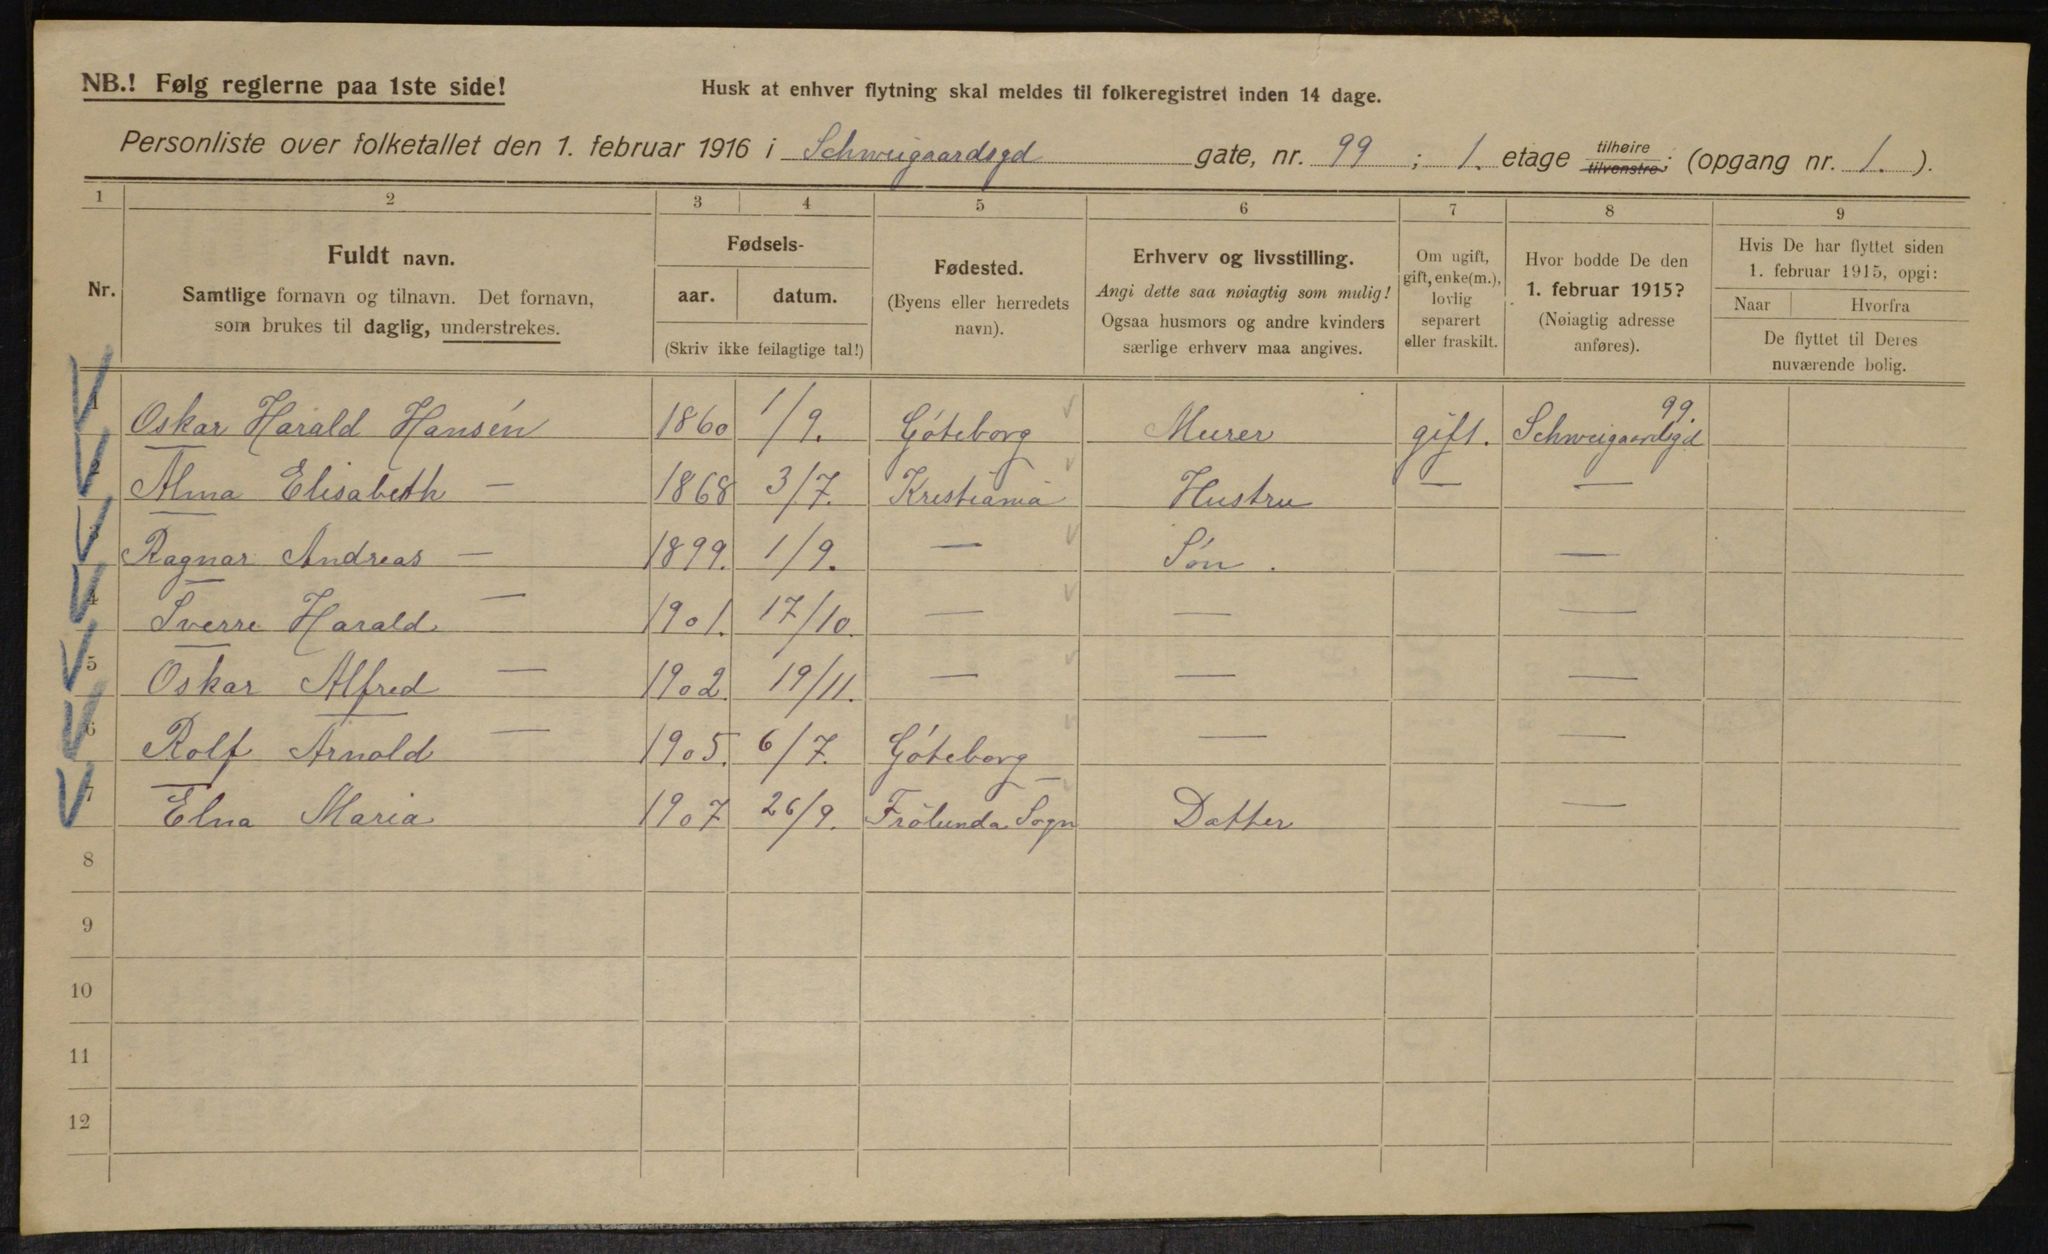 NB.! Følg reglerne paa 1ste side!
Husk at enhver flytning skal meldes til folkeregistret inden 14 dage.
Personliste over folketallet den 1. februar 1916 i Schweigaardsgd gate, nr. 99 ; 1. etage tilhøire tilvenstre; (opgang nr. 1. ).
1 2 3 4 5 6 7 8 9
Nr.
Fuldt navn.
Samtlige fornavn og tilnavn. Det fornavn,
som brukes til daglig, understrekes.
Fødsels-
aar. datum.
(Skriv ikke feilagtige tal!)
Fødested.
(Byens eller herredets
navn).
Erhverv og livsstilling.
Angi dette saa nøiagtig som mulig!
Ogsaa husmors og andre kvinders
særlige erhverv maa angives.
Om ugift,
gift, enke(m.),
lovlig
separert
eller fraskilt.
Hvor bodde De den
1. februar 1915?
(Nøiagtig adresse
anføres).
Hvis De har flyttet siden
1. februar 1915, opgi:
Naar Hvorfra
De flyttet til Deres
nuværende bolig.
1 Oskar Harald Hansén 1860 1/9. Göteborg Murer gift. Schweigaardsgd 99.
2 Alma Elisabeth — 1868 3/7. Kristiania Hustru — —
3 Ragnar Andreas — 1899. 1/9. — Søn. —
4 Sverre Harald — 1901. 17/10. — — —
5 Oskar Alfred — 1902. 19/11. — — —
6 Rolf Arnold — 1905. 6/7. Göteborg — —
7 Elna Maria 1907 26/9. Frölunda Sogn Datter —
8
9
10
11
12